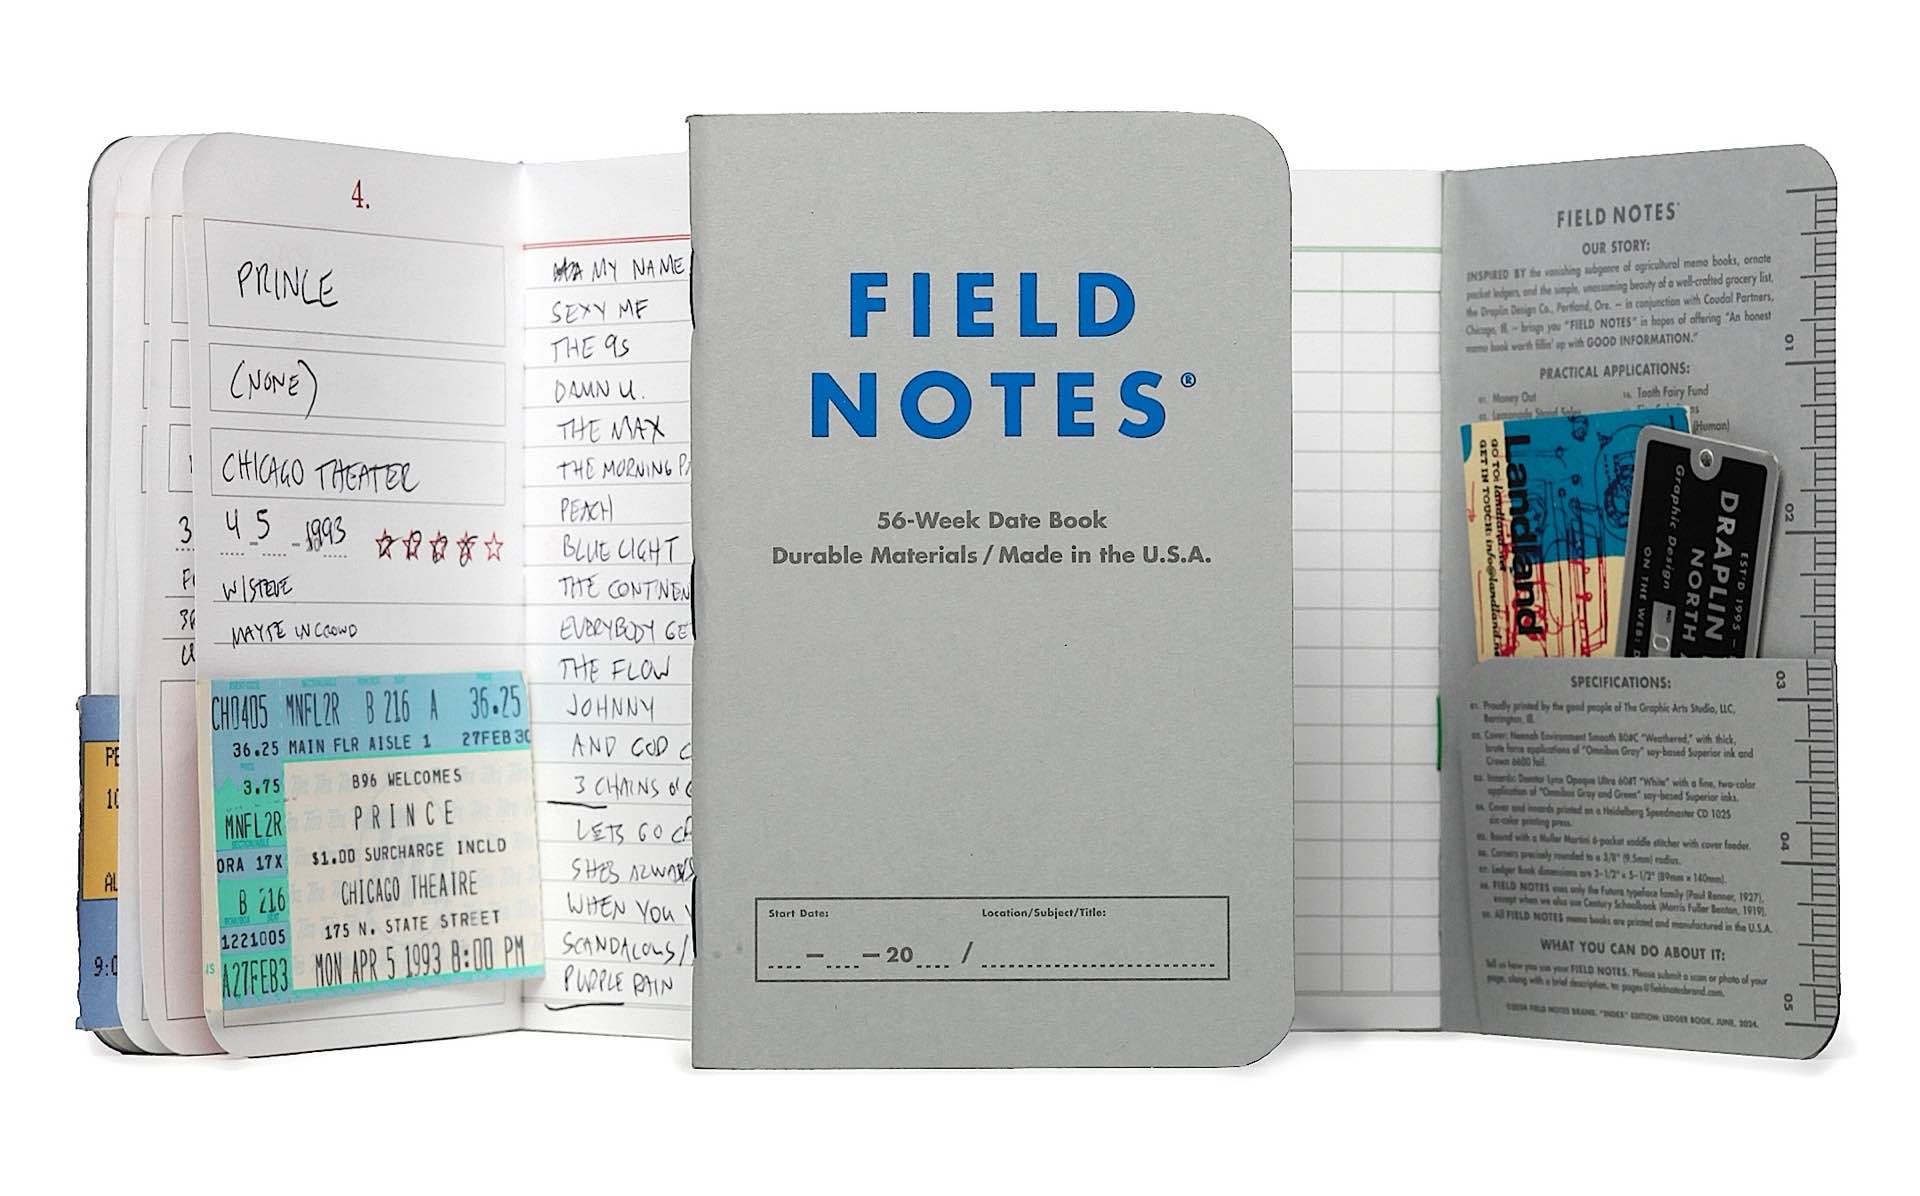 4.
PRINCE
(NONE)
CHICAGO THEATER
4 5 - 1993
W/STEVE
MAYTE IN CROWD
CH0405 MNFL2R B 216 A 36.25
36.25 MAIN FLR AISLE 1 27FEB3
3.75 B96 WELCOMES
MNFL2R PRINCE
ORA 17X $1.00 SURCHARGE INCLD
B 216 CHICAGO THEATRE
1221005 175 N. STATE STREET
A27FEB3 MON APR 5 1993 8:00 PM
MY NAME
SEXY MF
THE 9S
DAMN U.
THE MAX
THE MORNING P
PEACH
BLUE LIGHT
THE CONTINEN
EVERYBODY GE
THE FLOW
JOHNNY
AND GOD C
3 CHAINS O' G
LETS GO CR
SHES ALWAYS
WHEN YOU
SCANDALOUS/
PURPLE RAIN
FIELD
NOTES®
56-Week Date Book
Durable Materials / Made in the U.S.A.
Start Date: Location/Subject/Title:
– – 20 /
FIELD NOTES
OUR STORY:
INSPIRED BY the vanishing subgenre of agricultural memo books, ornate
pocket ledgers, and the simple, unassuming beauty of a well-crafted grocery list,
the Draplin Design Co., Portland, Ore. – in conjunction with Coudal Partners,
Chicago, Ill. – brings you "FIELD NOTES" in hopes of offering "An honest
memo book worth fillin' up with GOOD INFORMATION."
PRACTICAL APPLICATIONS:
01. Money Out 16. Tooth Fairy Fund
02. Lemonade Stand Sales
(Human)
Landland
GO TO: landland
GET IN TOUCH: info@landland
EST'D 1995
DRAPLIN
NORTH
Graphic Design
ON THE WEB: D
SPECIFICATIONS:
01. Proudly printed by the good people of The Graphic Arts Studio, LLC,
Barrington, Ill.
02. Cover: Neenah Environment Smooth 80#C "Weathered," with thick,
brute force applications of "Omnibus Gray" soy-based Superior ink and
Crown 6600 foil.
03. Innards: Domtar Lynx Opaque Ultra 60#T "White" with a fine, two-color
application of "Omnibus Gray and Green" soy-based Superior inks.
04. Cover and innards printed on a Heidelberg Speedmaster CD 1025
six-color printing press.
05. Bound with a Muller Martini 6-pocket saddle stitcher with cover feeder.
06. Corners precisely rounded to a 3/8" (9.5mm) radius.
07. Ledger Book dimensions are 3-1/2" x 5-1/2" (89mm x 140mm).
08. FIELD NOTES uses only the Futura typeface family (Paul Renner, 1927),
except when we also use Century Schoolbook (Morris Fuller Benton, 1919).
09. All FIELD NOTES memo books are printed and manufactured in the U.S.A.
WHAT YOU CAN DO ABOUT IT:
Tell us how you use your FIELD NOTES. Please submit a scan or photo of your
page, along with a brief description, to: pages@fieldnotesbrand.com.
©2024 FIELD NOTES BRAND. "INDEX" EDITION: LEDGER BOOK, JUNE, 2024.
01
02
03
04
05